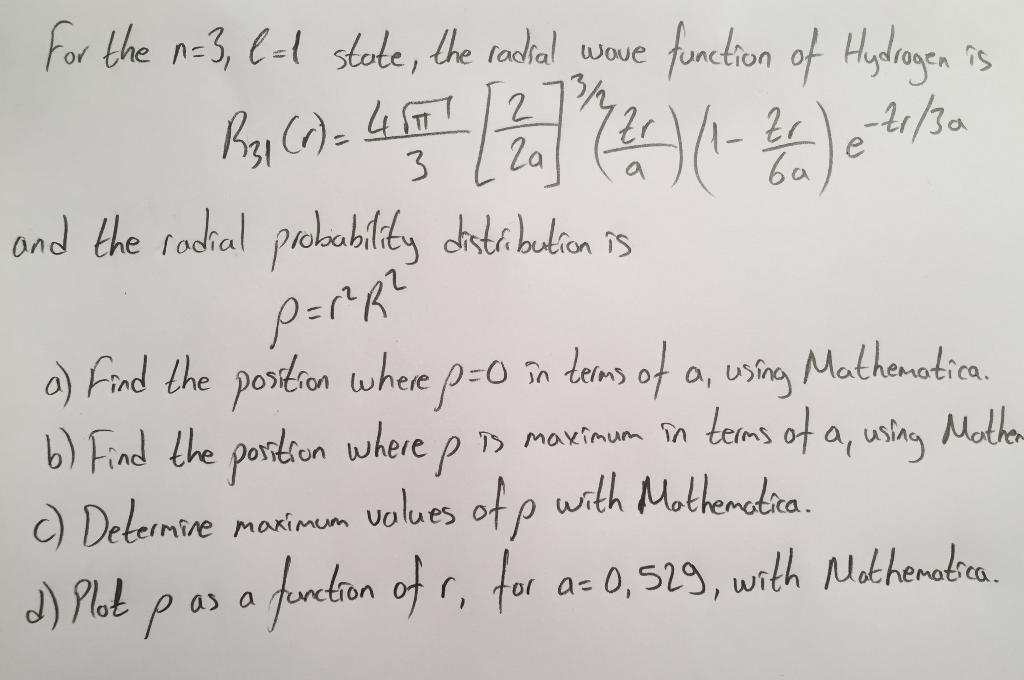 For the n=3, l=1 state, the radial wave function of Hydrogen is
R₃₁(r) = 4√π/3 [2/2a]^3/2 (Zr/a) (1 - Zr/6a) e^-Zr/3a
and the radial probability distribution is
ρ=r²R²
a) Find the position where ρ=0 in terms of a, using Mathematica.
b) Find the position where ρ is maximum in terms of a, using Mathem
c) Determine maximum values of ρ with Mathematica.
d) Plot ρ as a function of r, for a=0,529, with Mathematica.